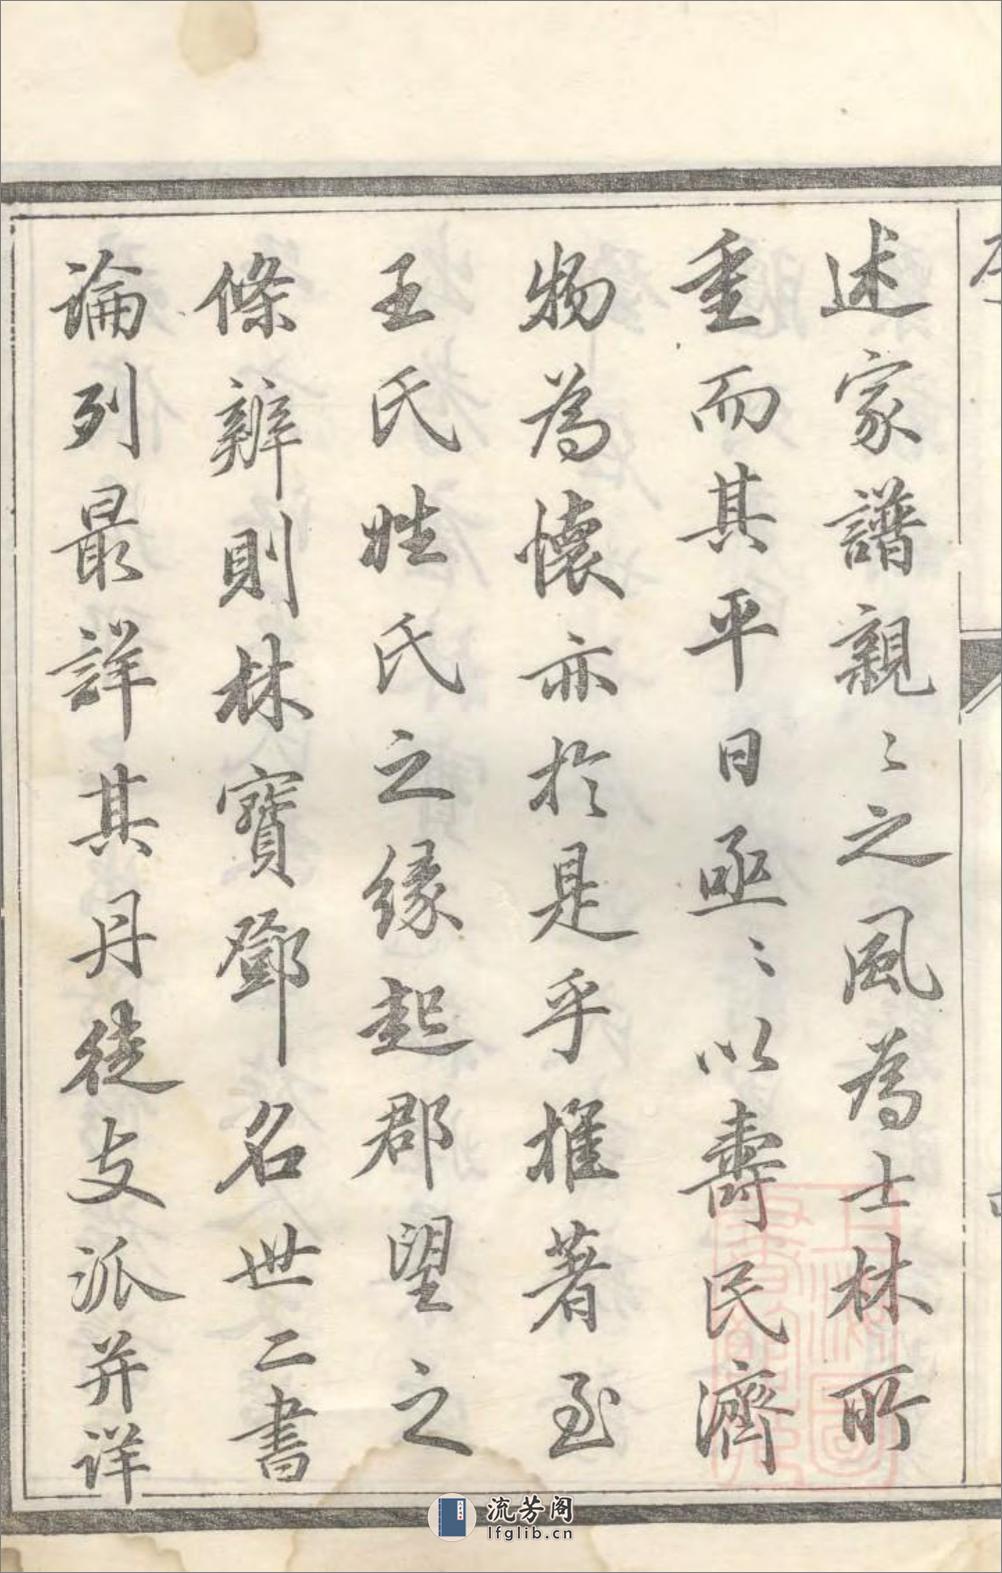 述家譜親〻之風為士林所
重而其平日亟〻以壽民濟
物為懷亦於是乎推著至
王氏姓氏之緣起郡望之
條辨則林寶鄧名世二書
論列最詳其丹徒支派并詳
流芳阁
lfglib.cn